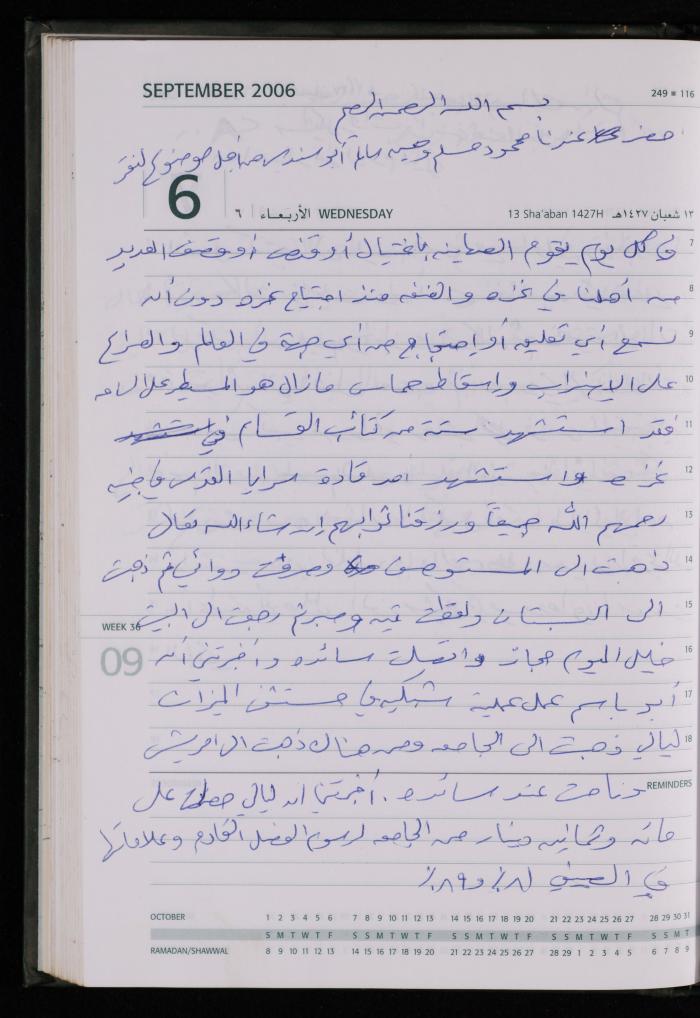 SEPTEMBER 2006
249 ■ 116
بسم الله الرحمن الرحيم
حضر عندنا محمود مسلم وحسن سالم أبو سندس من أجل موضوع لنفر
6
٦ الأربعاء WEDNESDAY
13 Sha'aban 1427H ١٣ شعبان ١٤٢٧هـ
7 في كل يوم يقوم الصهاينه باغتيال أو قنص أو قصف العديد
8 من أهلنا في غزه والضفه منذ اجتياح غزه دون أن
9 نسمع أي تعليق أو احتجاج من أي جهة في العالم والصراع
10 على الإضراب واسقاط حماس مازال هو المسيطر على الساحه
11 فقد استشهد ستة من كتائب القسام في
12 غزه واستشهد احد قادة سرايا القدس في جنين
13 رحمهم الله جميعاً ورزقنا ثوابهم إن شاء الله تعالى
14 ذهبت الى المستوصف وصرفت دوائي ثم ذهبت
15 الى البستان ولقطت تين وصبر ثم رجعت الى البيت
WEEK 36
09
16 خليل اليوم مجاز واتصلت سائده وأخبرتني أن
17 أبو باسم عمل عملية شبكيه في مستشفى الميزان
18 ليالي ذهبت الى الجامعه ومن هناك ذهبت الى ادريس
REMINDERS
ونامت عند سائده. أخبرتني ان ليالي حصلت على
مائه وثمانين دينار من الجامعه لرسوم الفصل القادم وعلاماتها
في الصيفي ٨٨٪ و ٨٩٪
OCTOBER 1 2 3 4 5 6 7 8 9 10 11 12 13 14 15 16 17 18 19 20 21 22 23 24 25 26 27 28 29 30 31
S M T W T F S S M T W T F S S M T W T F S S M T W T F S S M T
RAMADAN/SHAWWAL 8 9 10 11 12 13 14 15 16 17 18 19 20 21 22 23 24 25 26 27 28 29 1 2 3 4 5 6 7 8 9